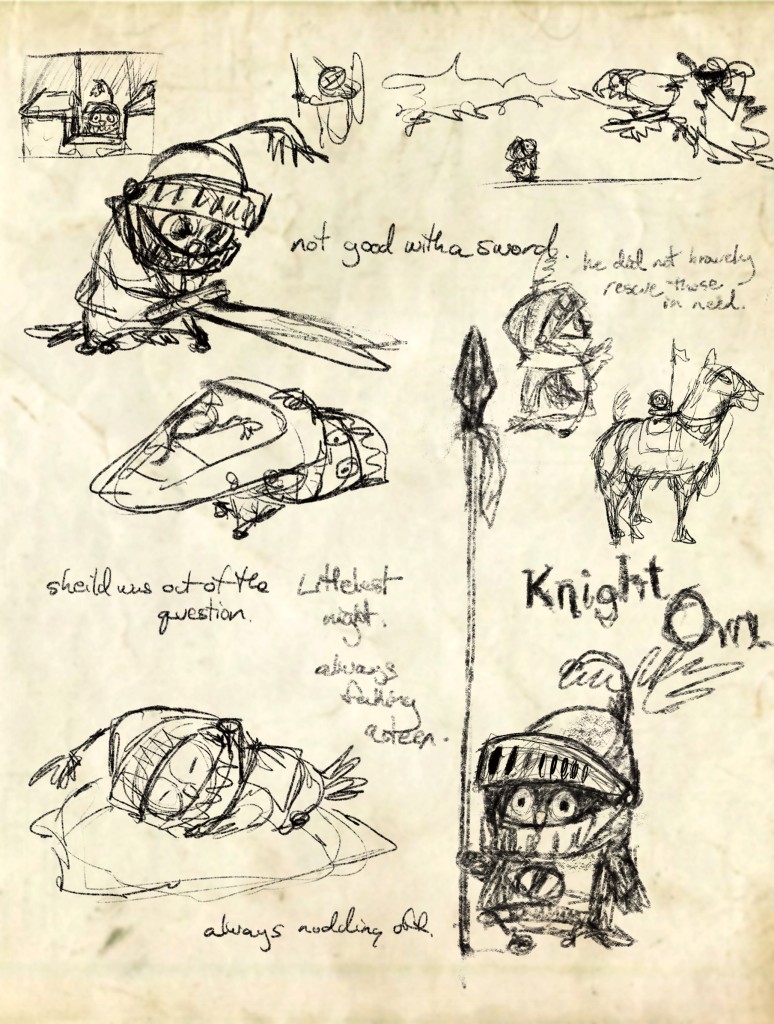 not good with a sword.
he did not bravely
rescue those
in need.
sheild was out of the
question.
Littlelest
night.
always
falling
asteen.
Knight
Owl
always nodding off.